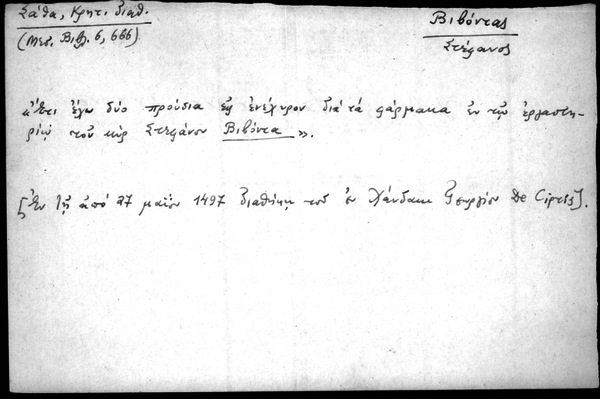 Σάθα, Κρητ. διαθ.
(Μεσ. Βιβλ. 6, 666)
Βιβόντας
Στέφανος
«Ἔτι ἔχω δύο προύσια εἰς ἐνέχυρον διὰ τὰ φάρμακα ἐν τῷ ἐργαστη-
ρίῳ τοῦ κὺρ Στεφάνου Βιβόντα».
[Ἐν τῇ ἀπό 27 μαΐου 1497 διαθήκῃ τοῦ ἐν Χάνδακι Γεωργίου De Cipris].